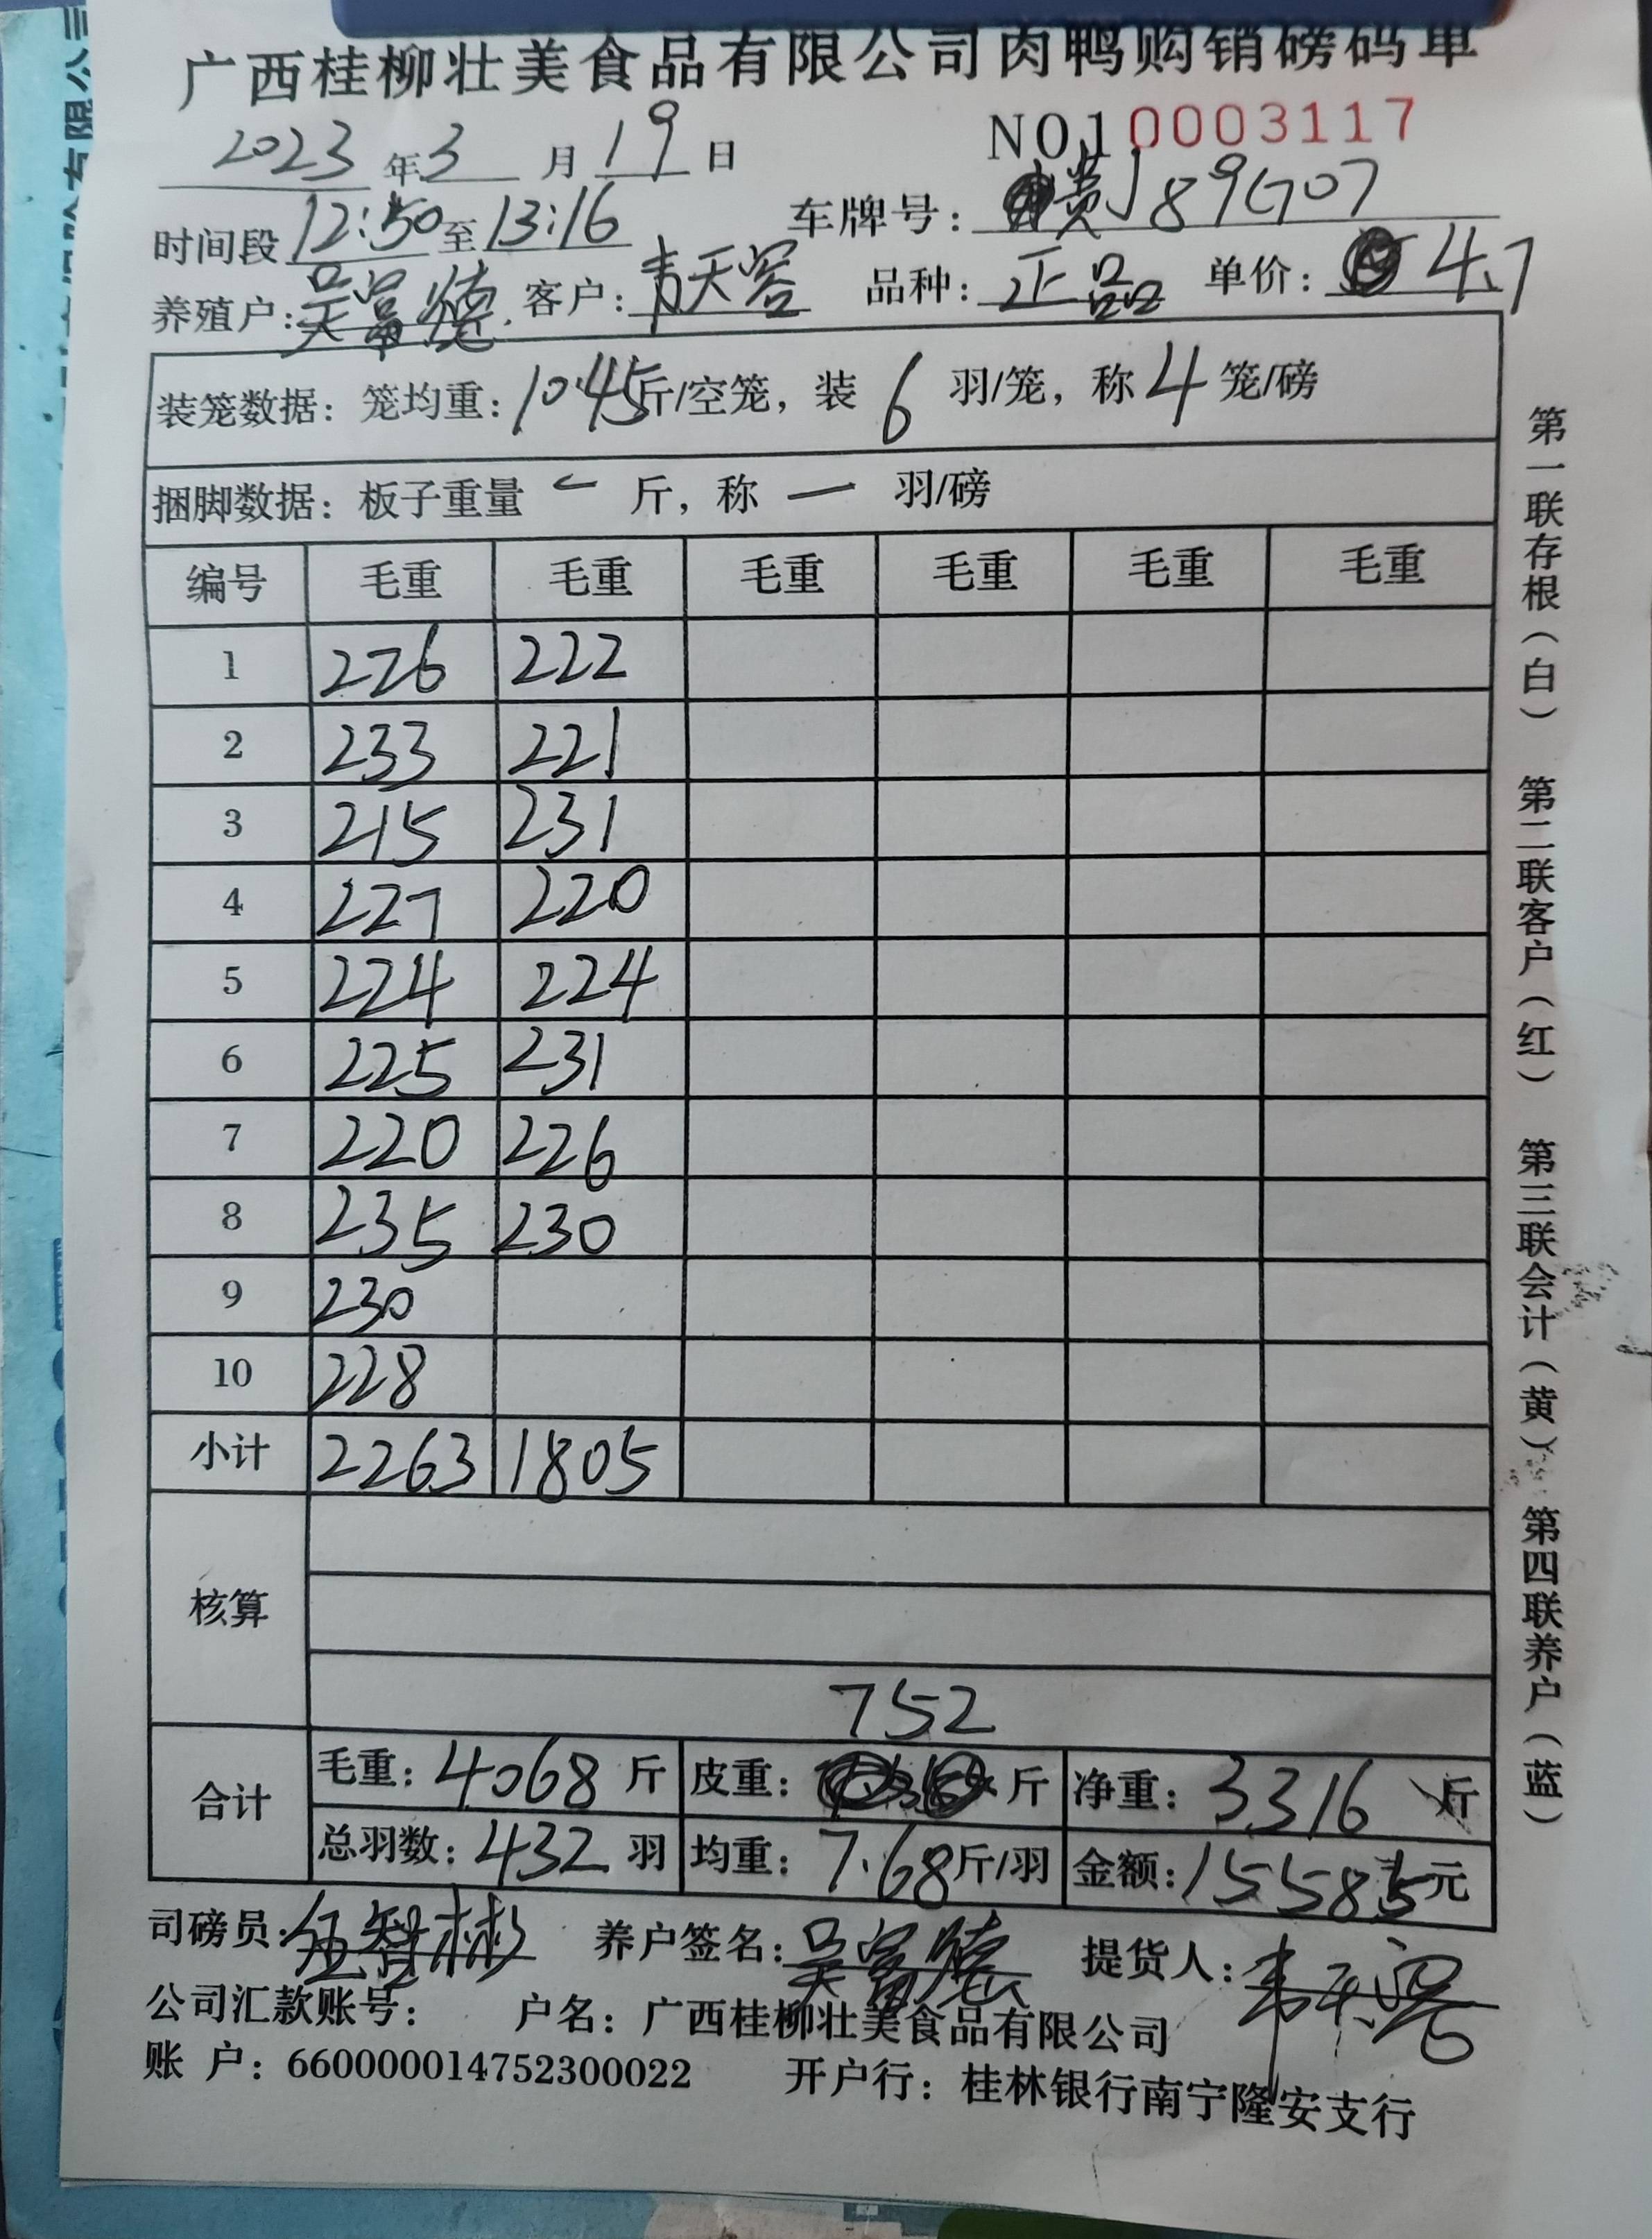 广西桂柳壮美食品有限公司肉鸭购销磅码单
NO10003117
2023年3月19日
时间段12:50至13:16 车牌号：黄J89G707
养殖户：吴富德 客户：韦天容 品种：正品 单价：4.7
装笼数据：笼均重：10.45斤/空笼，装6羽/笼，称4笼/磅
捆脚数据：板子重量 一 斤，称 一 羽/磅
编号 毛重 毛重 毛重 毛重 毛重 毛重
1 226 222
2 233 221
3 215 231
4 227 220
5 224 224
6 225 231
7 220 226
8 235 230
9 230
10 228
小计 2263 1805
核算
752
合计 毛重：4068斤 皮重：斤 净重：3316斤
总羽数：432羽 均重：7.68斤/羽 金额：15585元
司磅员：伍智彬 养户签名：吴富德 提货人：韦天容
公司汇款账号： 户名：广西桂柳壮美食品有限公司
账 户：660000014752300022 开户行：桂林银行南宁隆安支行
第一联存根（白） 第二联客户（红） 第三联会计（黄） 第四联养户（蓝）